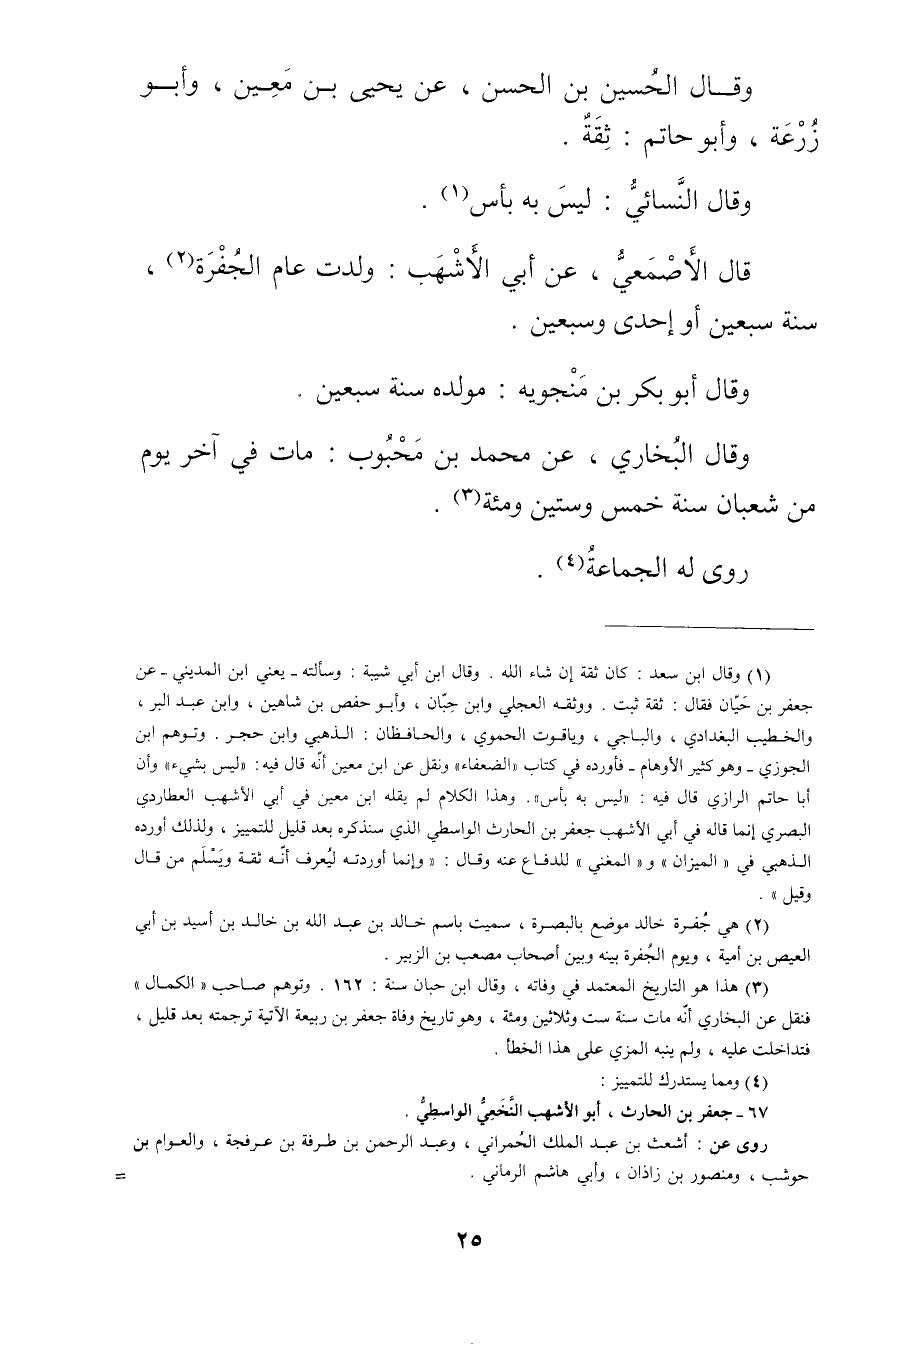 وقـــال الحُسين بن الحسن ، عن يحيى بـن مَعِـين ، وأبـــو
زُرْعَة ، وأبو حاتم : ثِقَةٌ .
وقال النَّسائيُّ : ليسَ به بأس(١) .
قال الأَصْمَعيُّ ، عن أبي الأَشْهَب : ولدت عام الجُفْرَة(٢) ،
سنة سبعين أو إحدى وسبعين .
وقال أبو بكر بن مَنْجويه : مولده سنة سبعين .
وقال البُخاري ، عن محمد بن مَحْبُوب : مات في آخر يوم
من شعبان سنة خمس وستين ومئة(٣) .
روى له الجماعةُ(٤) .
(١) وقال ابن سعد : كان ثقة إن شاء الله . وقال ابن أبي شيبة : وسألته ـ يعني ابن المديني ـ عن
جعفر بن حَيّان فقال : ثقة ثبت . ووثقـه العجلي وابن حِبّان ، وأبـو حفص بن شاهين ، وابن عبـد البر ،
والخطيب البغدادي ، والباجي ، وياقوت الحموي ، والحـافظان : الـذهبي وابن حجـر . وتـوهم ابن
الجوزي ـ وهو كثير الأوهام ـ فأورده في كتاب «الضعفاء» ونقل عن ابن معين أنّه قال فيه: «ليس بشيء» وأن
أبا حاتم الرازي قال فيه : «ليس به بأس». وهذا الكلام لم يقله ابن معين في أبي الأشهب العطاردي
البصري إنما قاله في أبي الأشهب جعفر بن الحارث الواسطي الذي سنذكره بعد قليل للتمييز ، ولذلك أورده
الـذهبي في « الميزان » و « المغني » للدفـاع عنه وقـال : « وإنمـا أوردتـه ليُعرف أنّـه ثقـة ويَسْلَم من قـال
وقيل » .
(٢) هي جُفـرة خالد موضع بالبصـرة ، سميت باسم خـالد بن عبـد الله بن خالـد بن أسيد بن أبي
العيص بن أمية ، ويوم الجُفرة بينه وبين أصحاب مصعب بن الزبير .
(٣) هذا هو التاريخ المعتمد في وفاته ، وقال ابن حبان سنة : ١٦٢ . وتوهم صـاحب « الكمـال »
فنقل عن البخاري أنّه مات سنة ست وثلاثين ومئة ، وهو تاريخ وفاة جعفر بن ربيعة الآتية ترجمته بعد قليل ،
فتداخلت عليه ، ولم ينبه المزي على هذا الخطأ .
(٤) ومما يستدرك للتمييز :
٦٧ ـ جعفر بن الحارث ، أبو الأشهب النَّخَعِيُّ الواسطِيُّ .
روى عن : أشعث بن عبد الملك الحُمراني ، وعبـد الرحمن بن طـرفة بن عـرفجة ، والعـوام بن
حوشب ، ومنصور بن زاذان ، وأبي هاشم الرماني .
=
٢٥